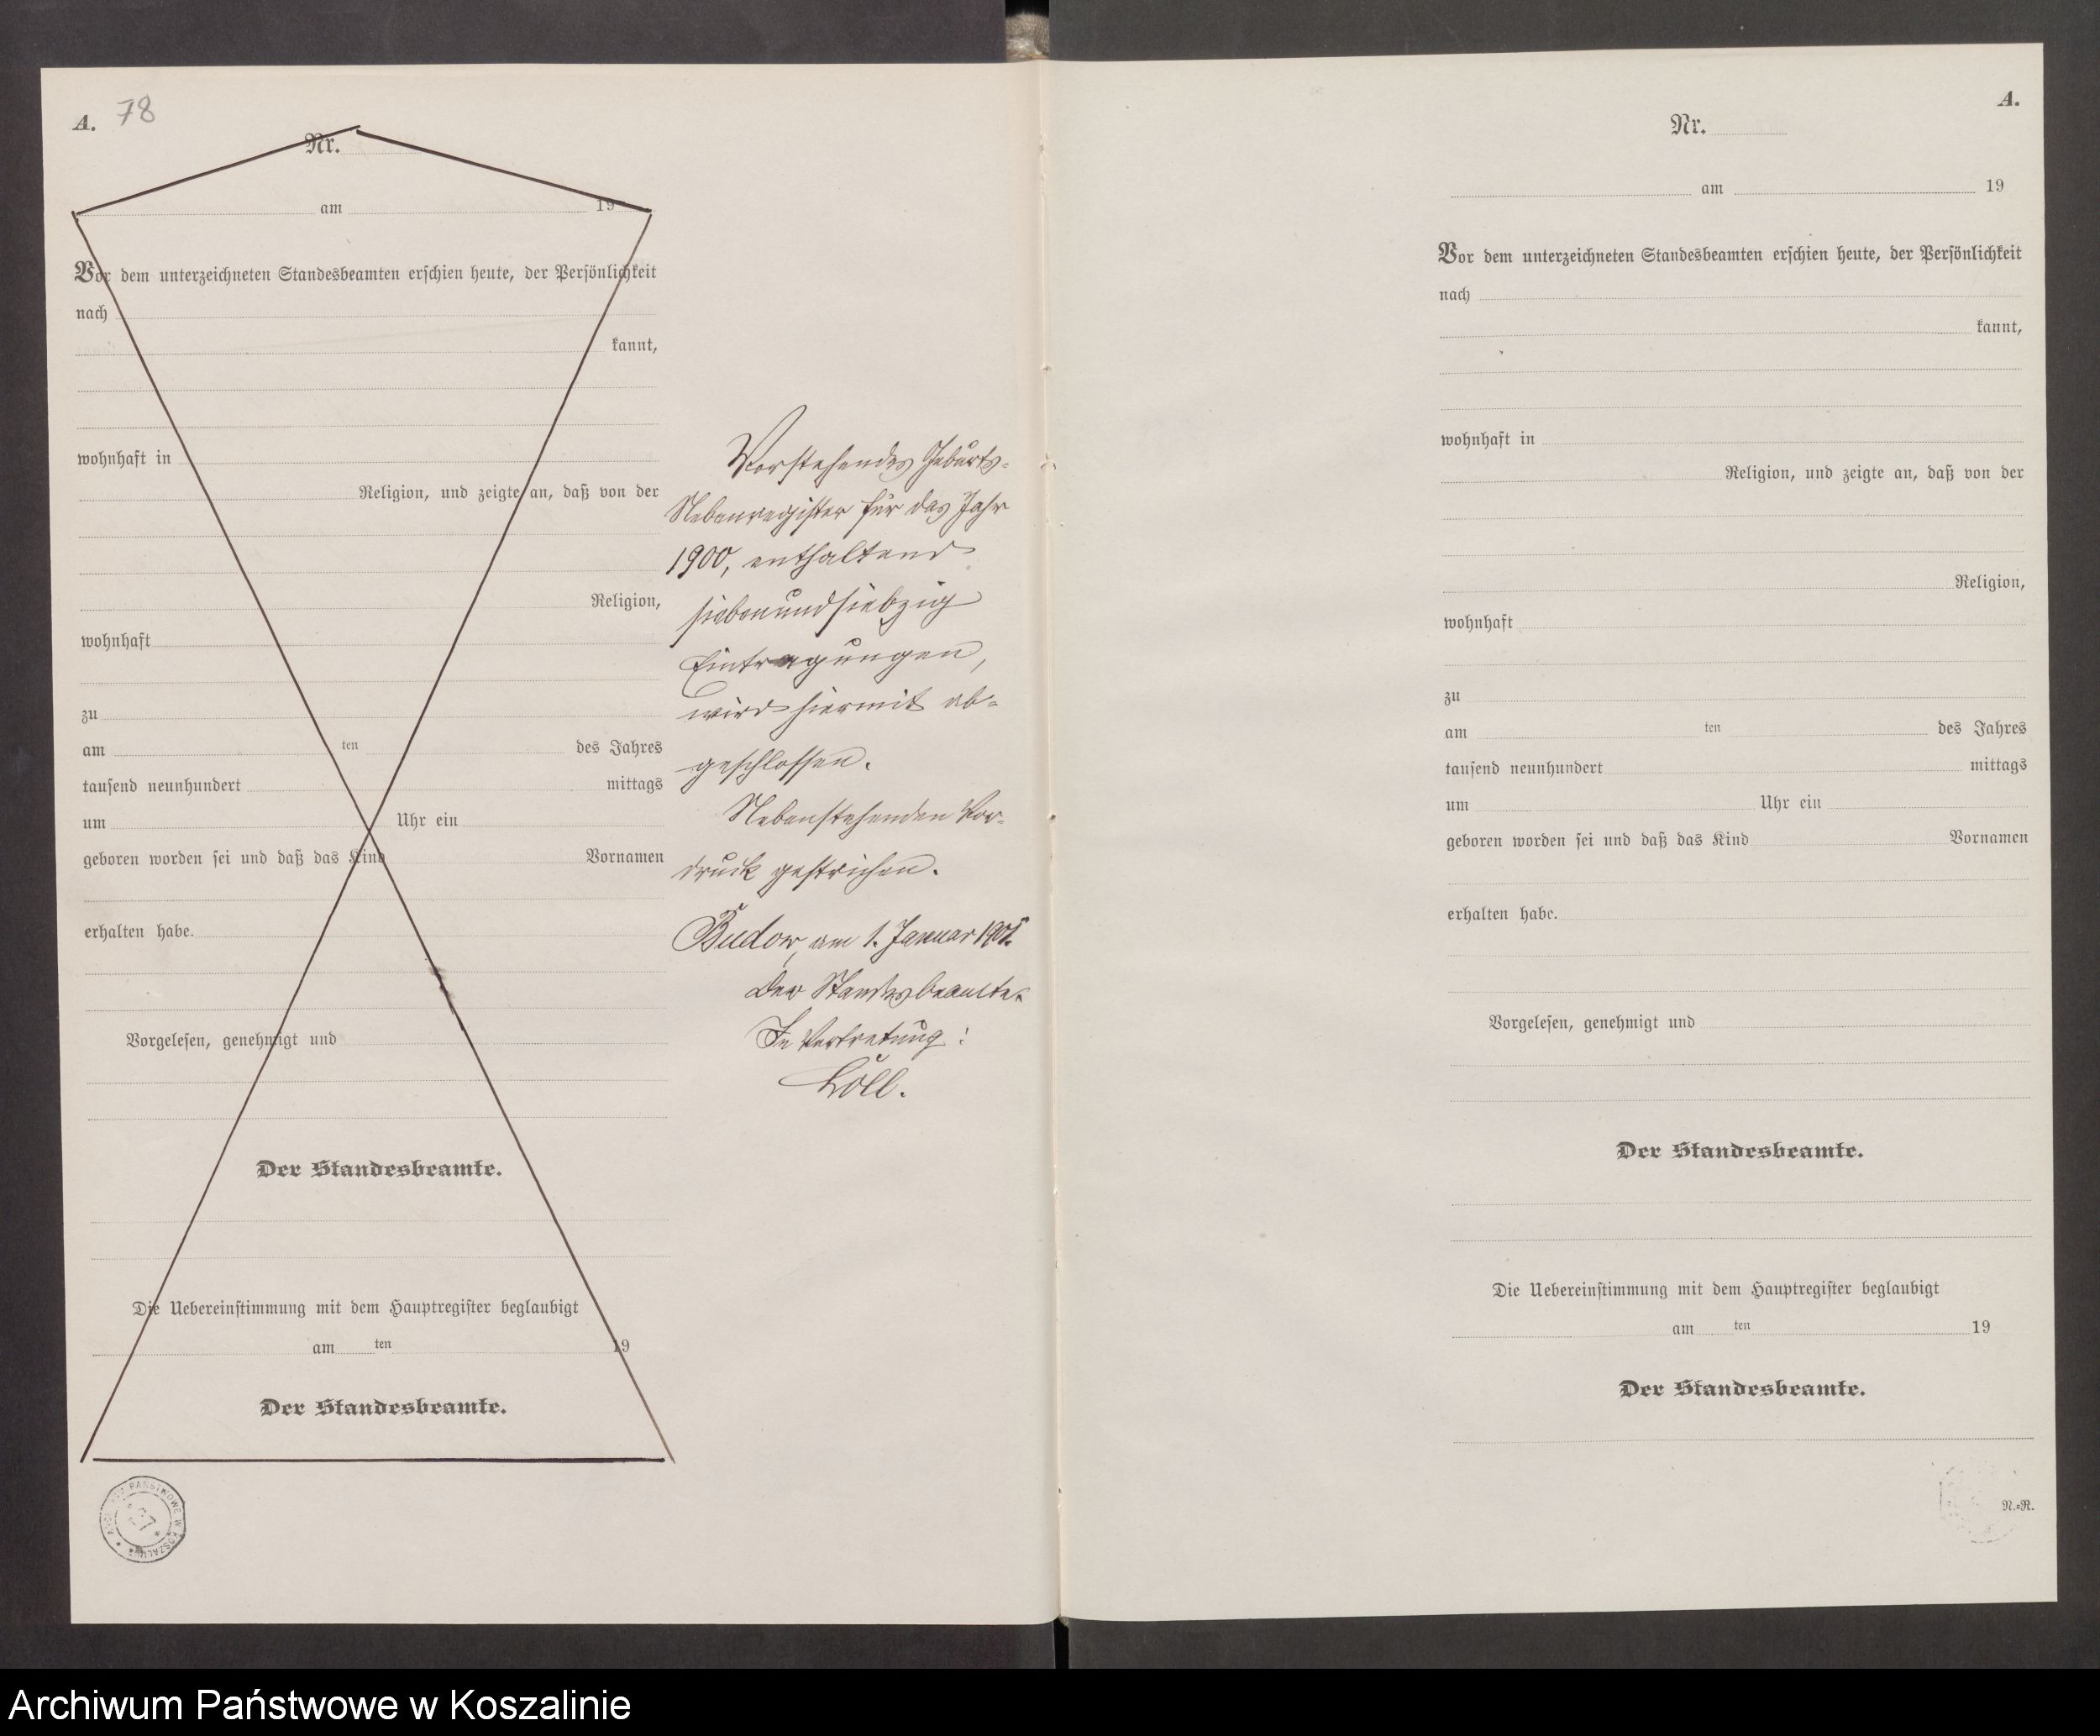 A. 78
Nr.
am 19
Vor dem unterzeichneten Standesbeamten erschien heute, der Persönlichkeit
nach
kannt,
wohnhaft in
Religion, und zeigte an, daß von der
Religion,
wohnhaft
zu
am ten des Jahres
tausend neunhundert mittags
um Uhr ein
geboren worden sei und daß das Kind Vornamen
erhalten habe.
Vorgelesen, genehmigt und
Der Standesbeamte.
Die Uebereinstimmung mit dem Hauptregister beglaubigt
am ten 19
Der Standesbeamte.
PAŃSTWOWE W KOSZALINIE
Vorstehendes Geburts-
Nebenregister für das Jahr
1900, enthaltend
siebenundsiebzig
Eintragungen,
wird hiermit ab-
geschlossen.
Nebenstehenden Vor-
druck gestrichen.
Budow, am 1. Januar 1901.
Der Standesbeamte.
In Vertretung:
Löll.
A.
Nr.
am 19
Vor dem unterzeichneten Standesbeamten erschien heute, der Persönlichkeit
nach
kannt,
wohnhaft in
Religion, und zeigte an, daß von der
Religion,
wohnhaft
zu
am ten des Jahres
tausend neunhundert mittags
um Uhr ein
geboren worden sei und daß das Kind Vornamen
erhalten habe.
Vorgelesen, genehmigt und
Der Standesbeamte.
Die Uebereinstimmung mit dem Hauptregister beglaubigt
am ten 19
Der Standesbeamte.
N.=R.
Archiwum Państwowe w Koszalinie